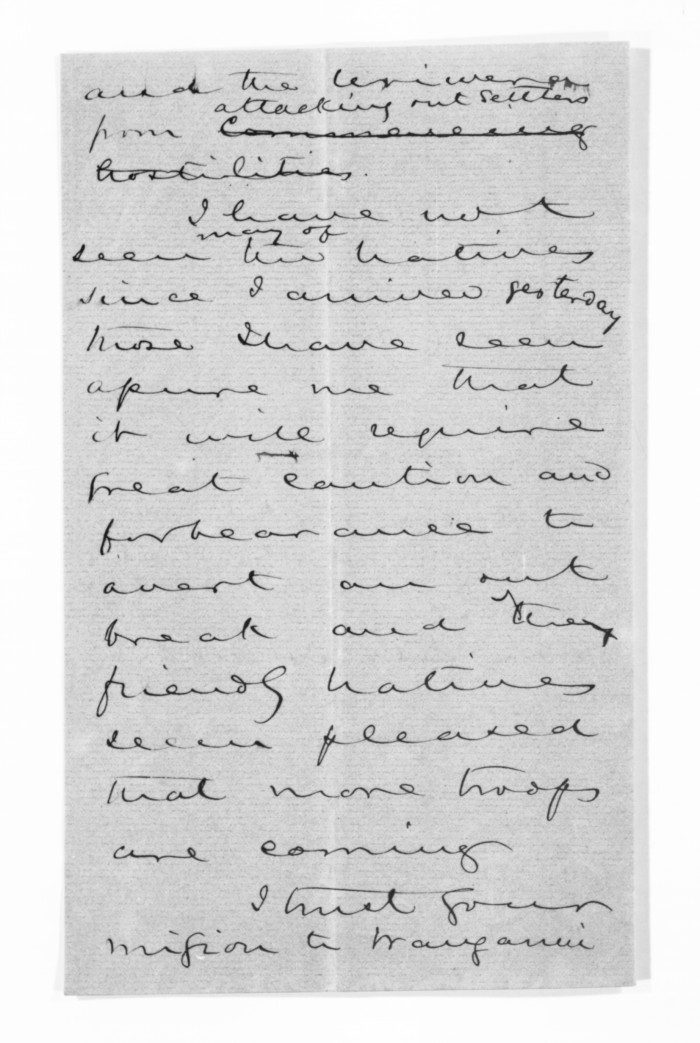 and the Uriwera
attacking out settlers
from Commencing
hostilities.
I have not
many of
seen the Natives
since I arrived yesterday
those I have seen
assure me that
it will require
great caution and
forbearance to
avert an out
break and the
friendly Natives
seem pleased
that more troops
are coming
I trust your
mission to Wanganui